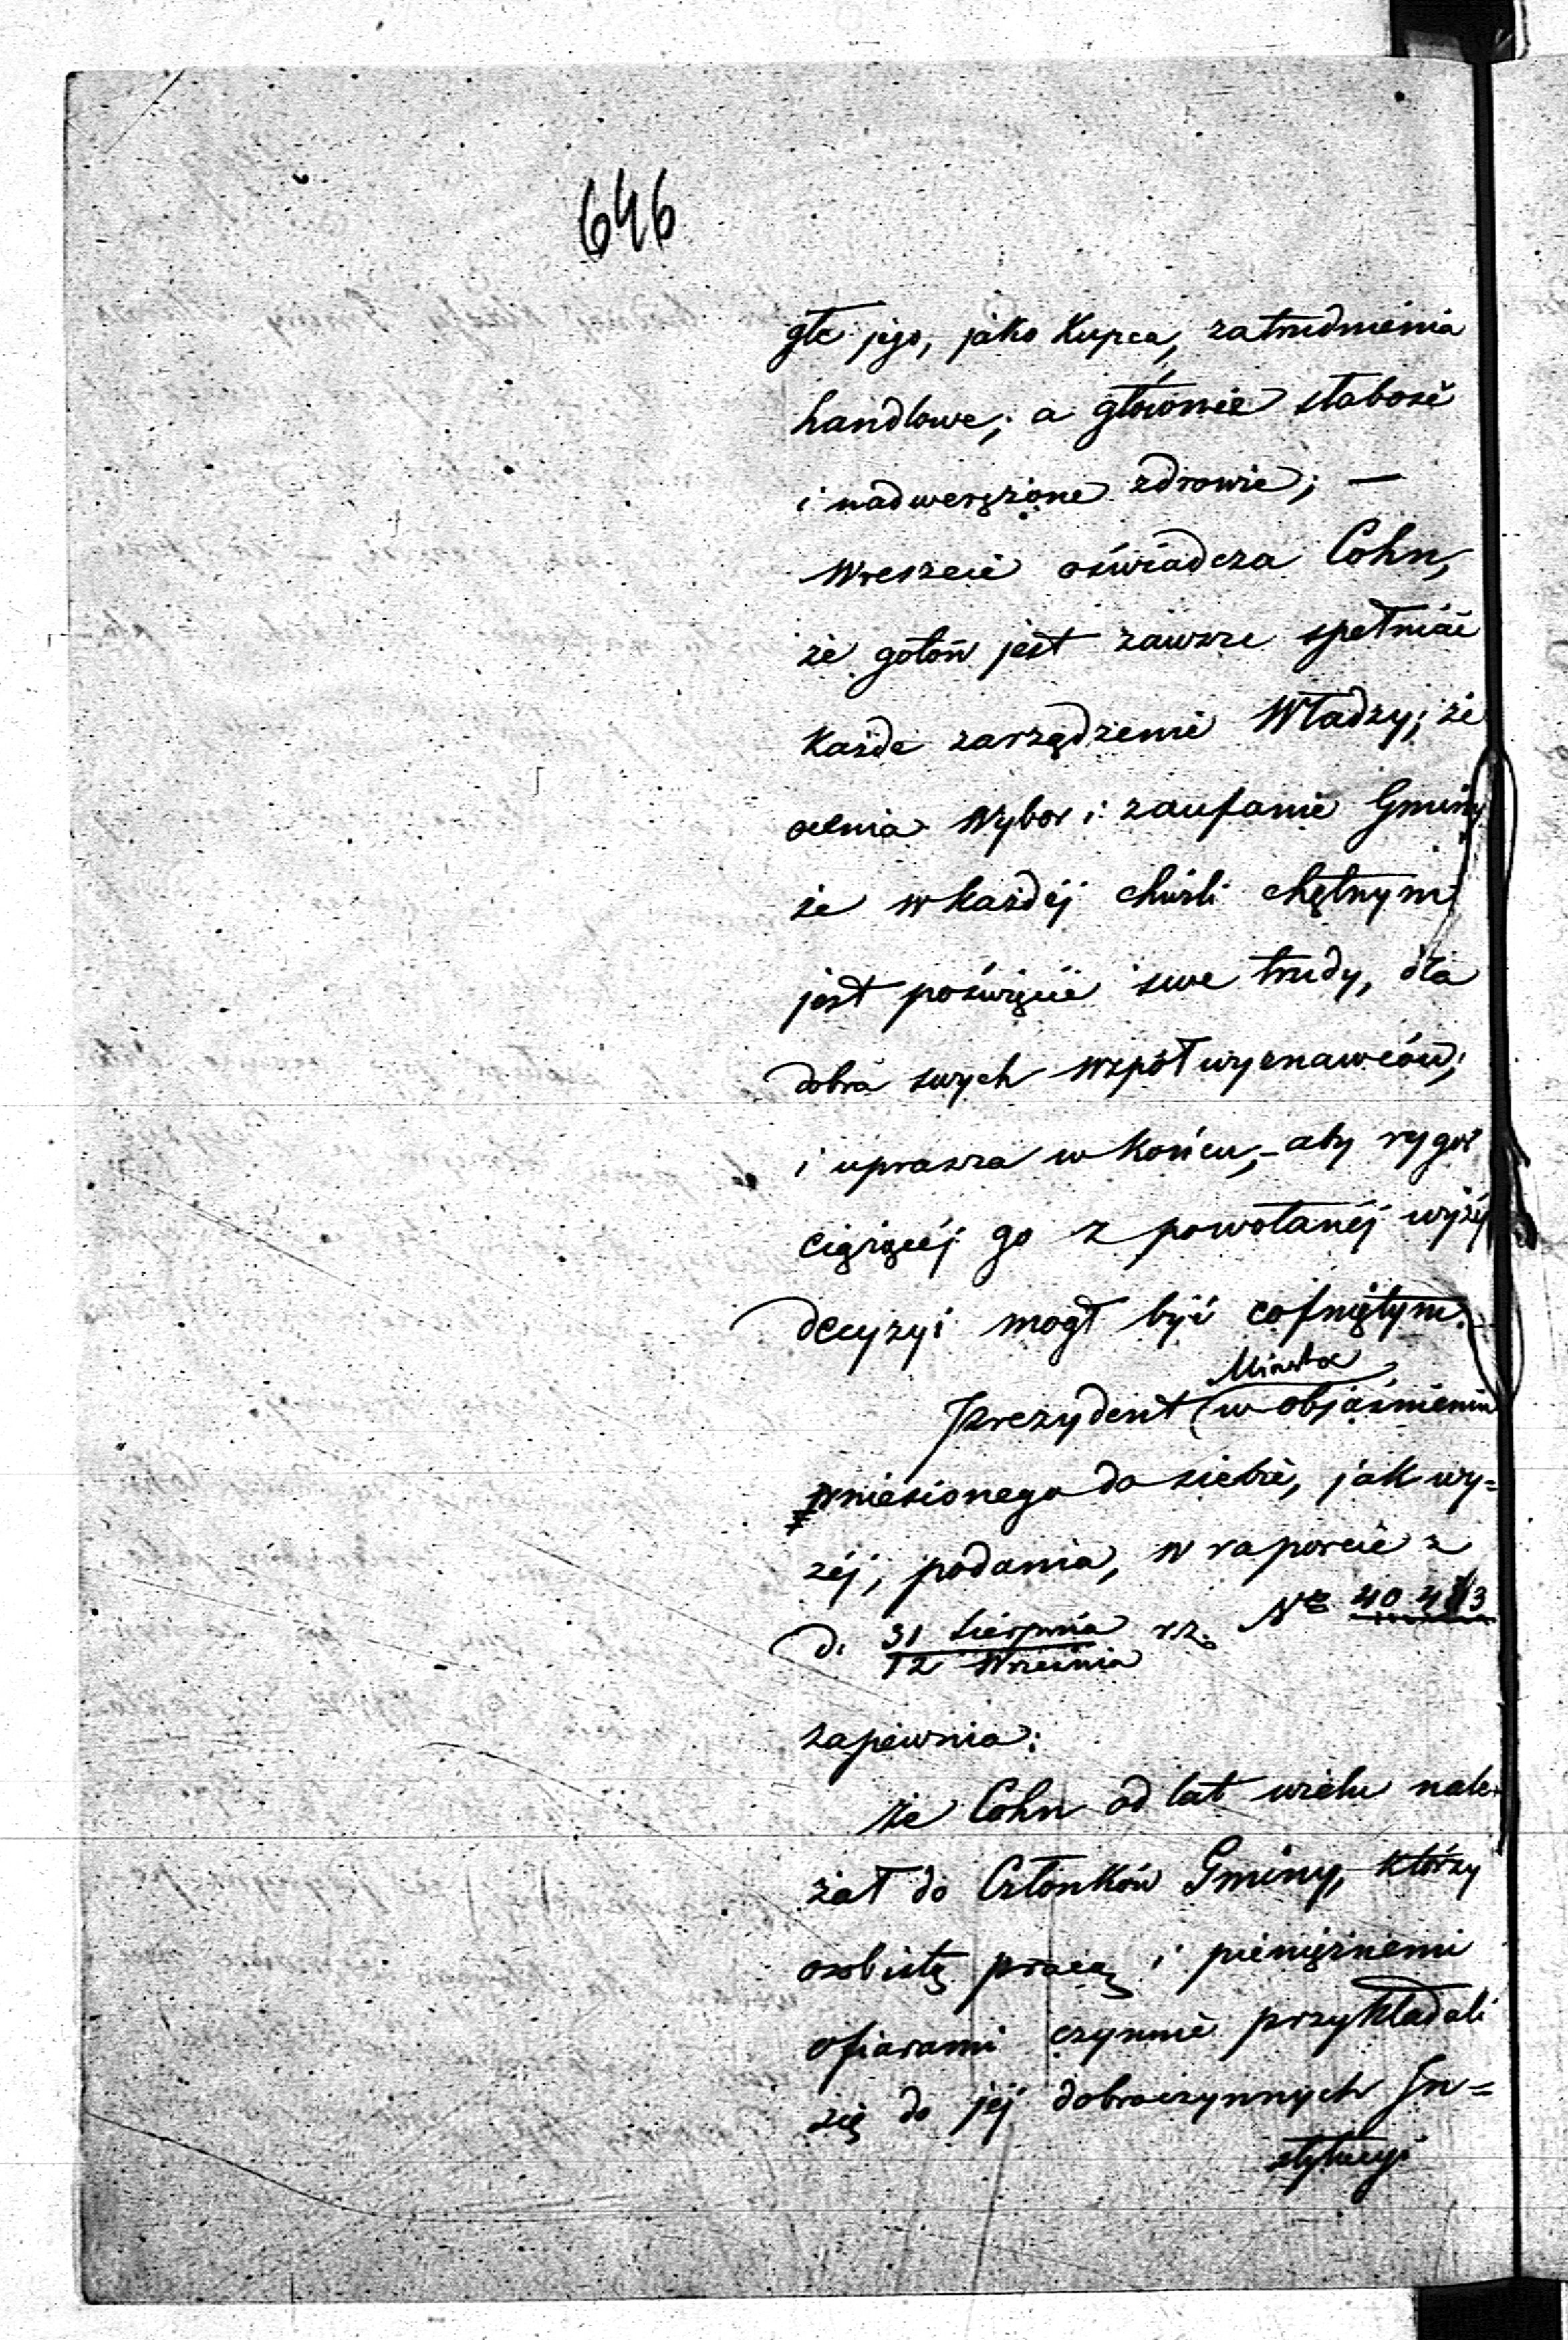 646
głe jego, jako Kupca, zatrudnienia
handlowe; a głównie słabość
i nadwerężone zdrowie; —
wreszcie oświadcza Cohn,
że gotów jest zawsze spełniać
każde zarządzenie Władzy; że
ocenia wybor i zaufanie Gminy
że w każdej chwili chętnym
jest poświęcić swe trudy, dla
dobra swych współwyznawców;
i uprasza w końcu, – aby rygor
ciążącéj go z powołanéj wyżéj
decyzyi mogł być cofniętym.
Miasta
Prezydent w objaśnieniu
wniesionego do siebie, jak wy=
żéj, podania, w raporcie z
d. 31 Sierpnia rz. No
12 Września
zapewnia:
że Cohn od lat wielu nale-
żał do Członków Gminy, którzy
osobistą pracą i pieniężnemi
ofiarami czynnie przykładali
się do jéj dobroczynnych In=
stytucyi